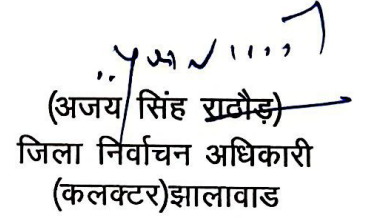 (अजय सिंह राठौड़)
जिला निर्वाचन अधिकारी
(कलक्टर)झालावाड